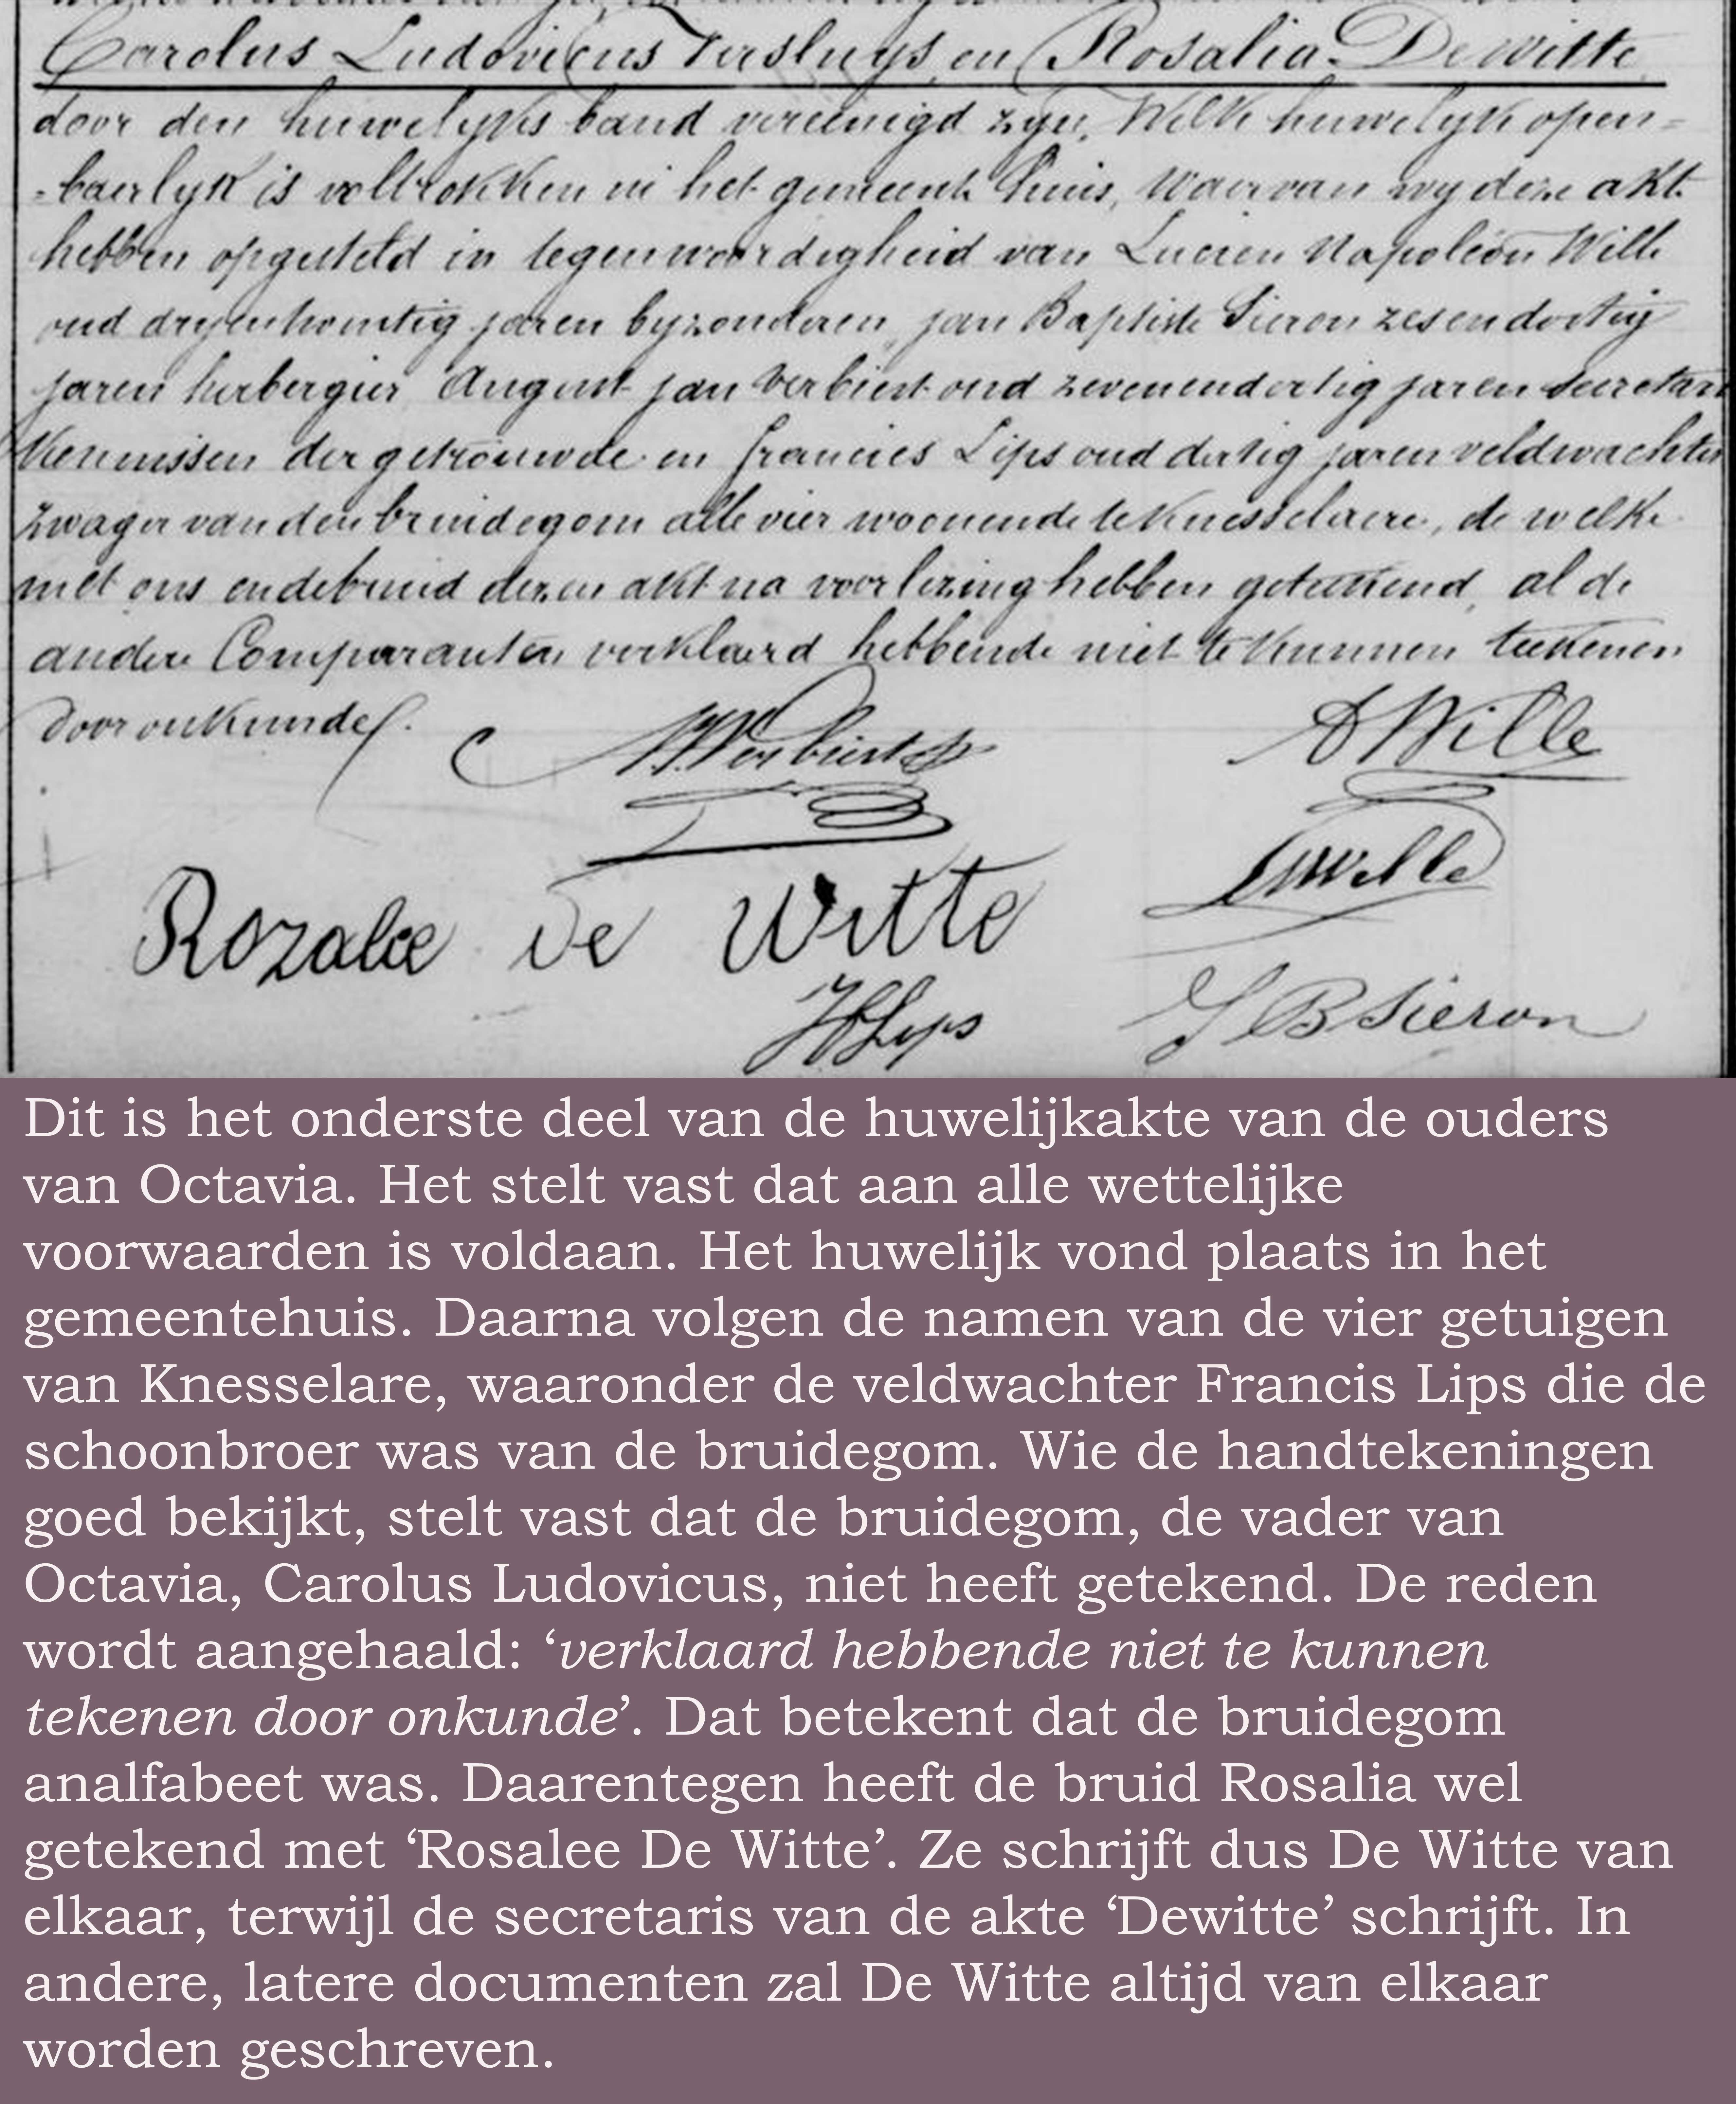 Carolus Ludovicus Versluys en Rosalia Dewitte
door den huwelyks band vereenigd zyn, Welk huwelyk open=
=baerlyk is voltrokken in het gemeente huis, Waervan wy deze akt
hebben opgesteld in tegenwoordigheid van Lucien Napoleon Wille
oud dryentwintig jaren byzonderen, jan Baptiste Sieron zesendertig
jaren herbergier August jan Verbiest oud zevenendertig jaren secretaris
Kennissen der getrouwde en francies Lips oud dertig jaren veldwachter
Zwager van den bruidegom alle vier woonende te Knesselaere, de welke
met ons en de bruid dezen akt na voorlezing hebben geteekend, al de
andere Comparanten verklaard hebbende niet te kunnen teekenen
door onkunde.
A Wille
Rozalee De Witte
Lips
J B Sieron
Dit is het onderste deel van de huwelijkakte van de ouders
van Octavia. Het stelt vast dat aan alle wettelijke
voorwaarden is voldaan. Het huwelijk vond plaats in het
gemeentehuis. Daarna volgen de namen van de vier getuigen
van Knesselare, waaronder de veldwachter Francis Lips die de
schoonbroer was van de bruidegom. Wie de handtekeningen
goed bekijkt, stelt vast dat de bruidegom, de vader van
Octavia, Carolus Ludovicus, niet heeft getekend. De reden
wordt aangehaald: ‘verklaard hebbende niet te kunnen
tekenen door onkunde’. Dat betekent dat de bruidegom
analfabeet was. Daarentegen heeft de bruid Rosalia wel
getekend met ‘Rosalee De Witte’. Ze schrijft dus De Witte van
elkaar, terwijl de secretaris van de akte ‘Dewitte’ schrijft. In
andere, latere documenten zal De Witte altijd van elkaar
worden geschreven.